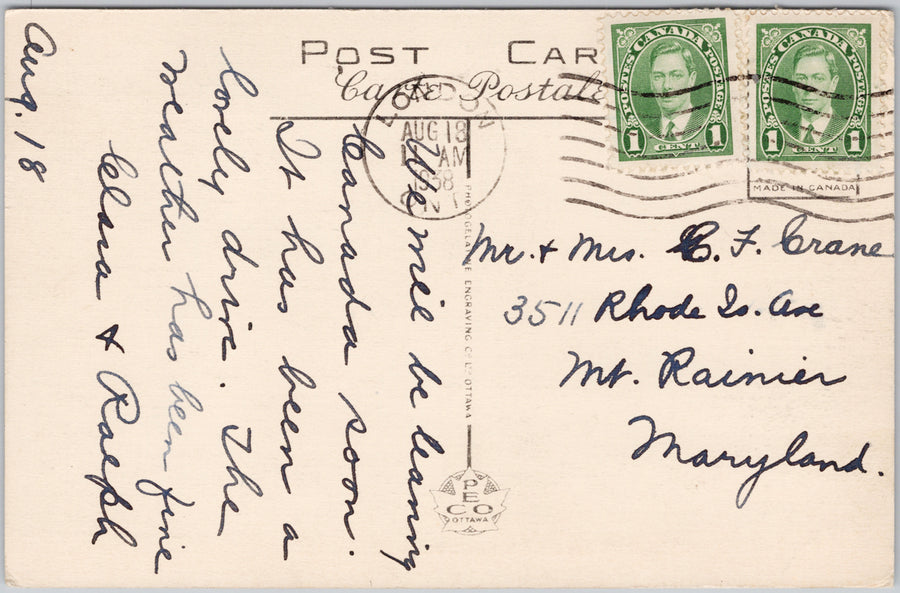 POST CAR
Carte Postale
POSTES CANADA POSTAGE
1 CENT 1
POSTES CANADA POSTAGE
1 CENT 1
LONDON
AUG 18
AM
1938
ONT
MADE IN CANADA
Aug. 18
We will be leaving
Canada soon.
It has been a
lovely drive. The
weather has been fine
Clara & Ralph
Mr. & Mrs. C. F. Crane
3511 Rhode Is. Ave
Mt. Rainier
Maryland.
PHOTOGELATINE ENGRAVING CO. LTD. OTTAWA
PECO
OTTAWA